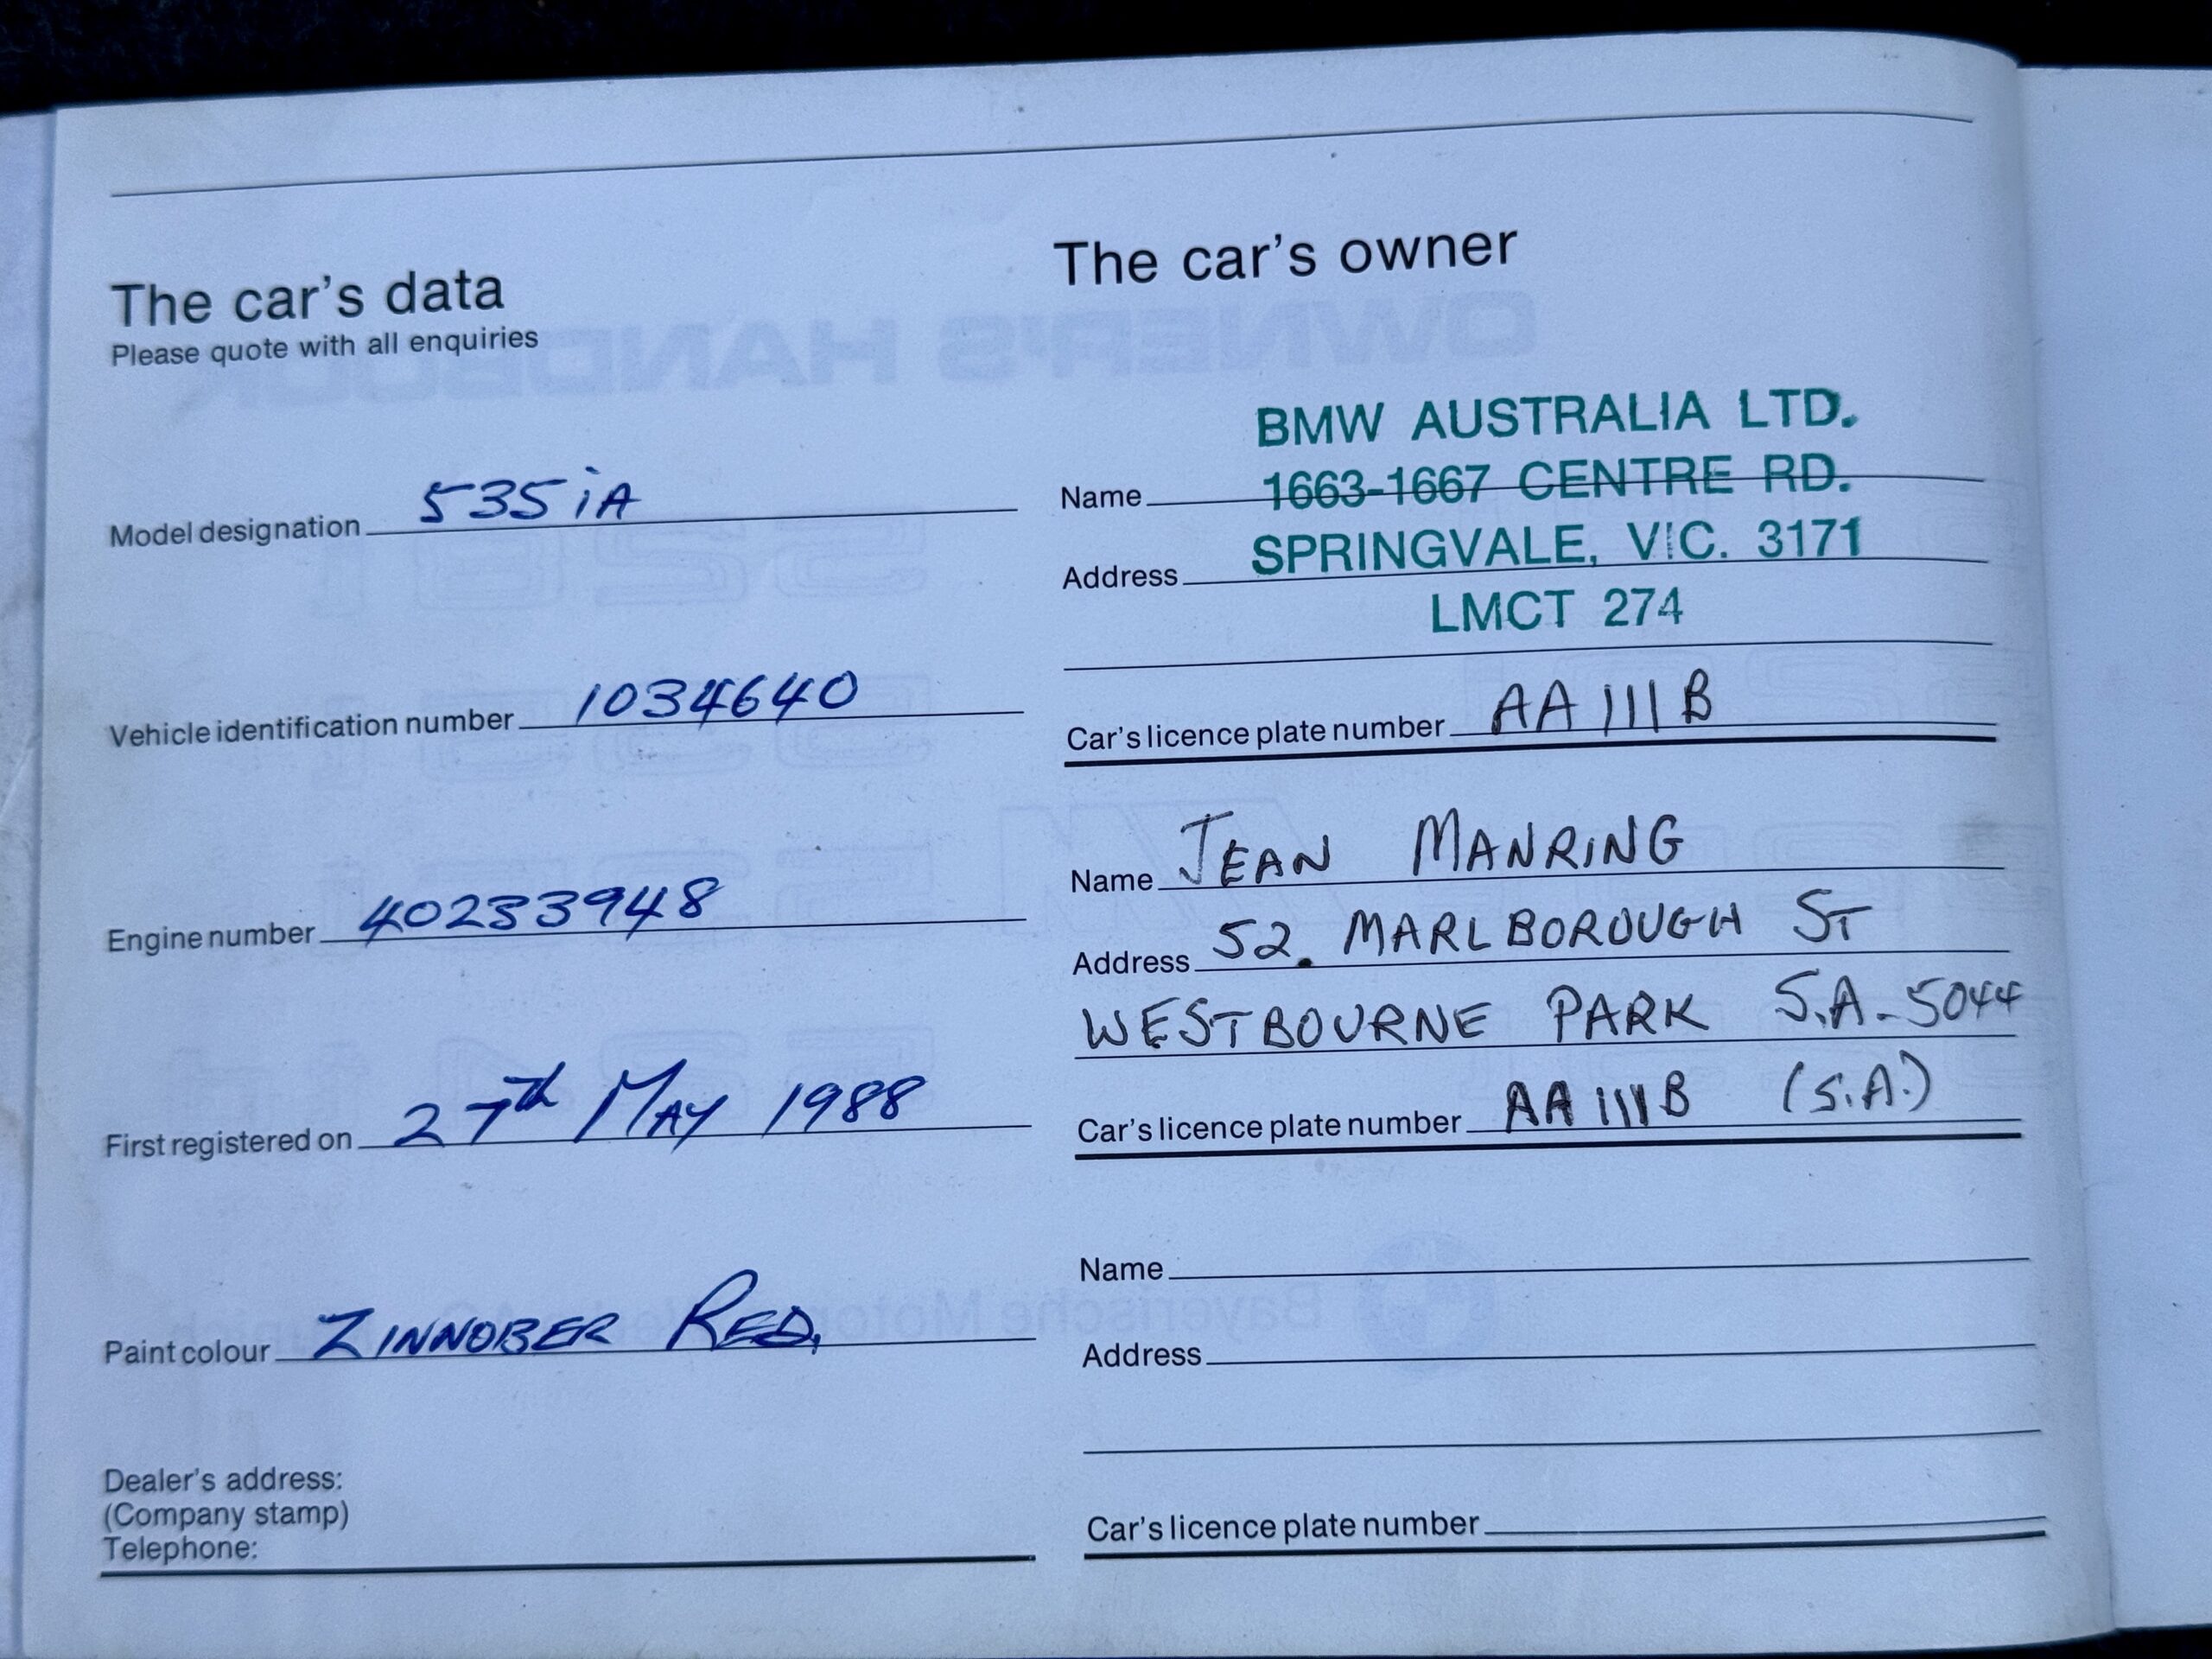 The car's data
Please quote with all enquiries
Model designation 535iA
Vehicle identification number 1034640
Engine number 40233948
First registered on 27th MAY 1988
Paint colour ZINNOBER RED.
Dealer's address:
(Company stamp)
Telephone:
The car's owner
BMW AUSTRALIA LTD.
Name 1663-1667 CENTRE RD.
Address SPRINGVALE, VIC. 3171
LMCT 274
Car's licence plate number AA111B
Name JEAN MANRING
Address 52. MARLBOROUGH ST
WESTBOURNE PARK S.A. 5044
Car's licence plate number AA111B (S.A.)
Name
Address
Car's licence plate number
OWNER'S HANDBOOK